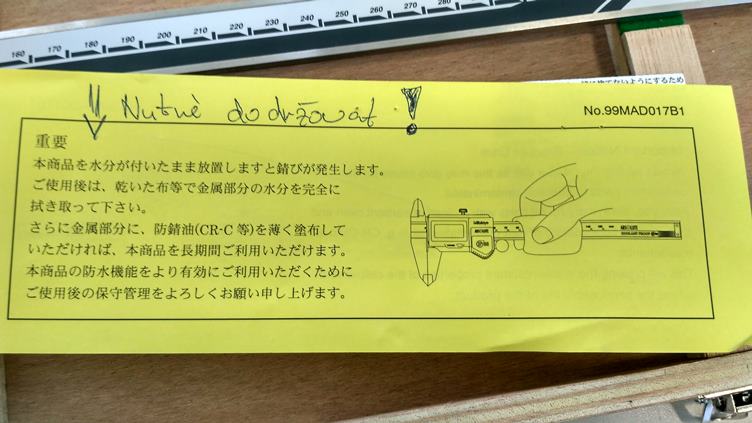 160 170 180 190 200 210 220 230 240 250 260 270 280 290
Nutně dodržovat !
No.99MAD017B1
重要
本商品を水分が付いたまま放置しますと錆びが発生します。
ご使用後は、乾いた布等で金属部分の水分を完全に
拭き取って下さい。
さらに金属部分に、防錆油(CR-C 等)を薄く塗布して
いただければ、本商品を長期間ご利用いただけます。
本商品の防水機能をより有効にご利用いただくために
ご使用後の保守管理をよろしくお願い申し上げます。
Mitutoyo
ABSOLUTE
ABSOLUTE